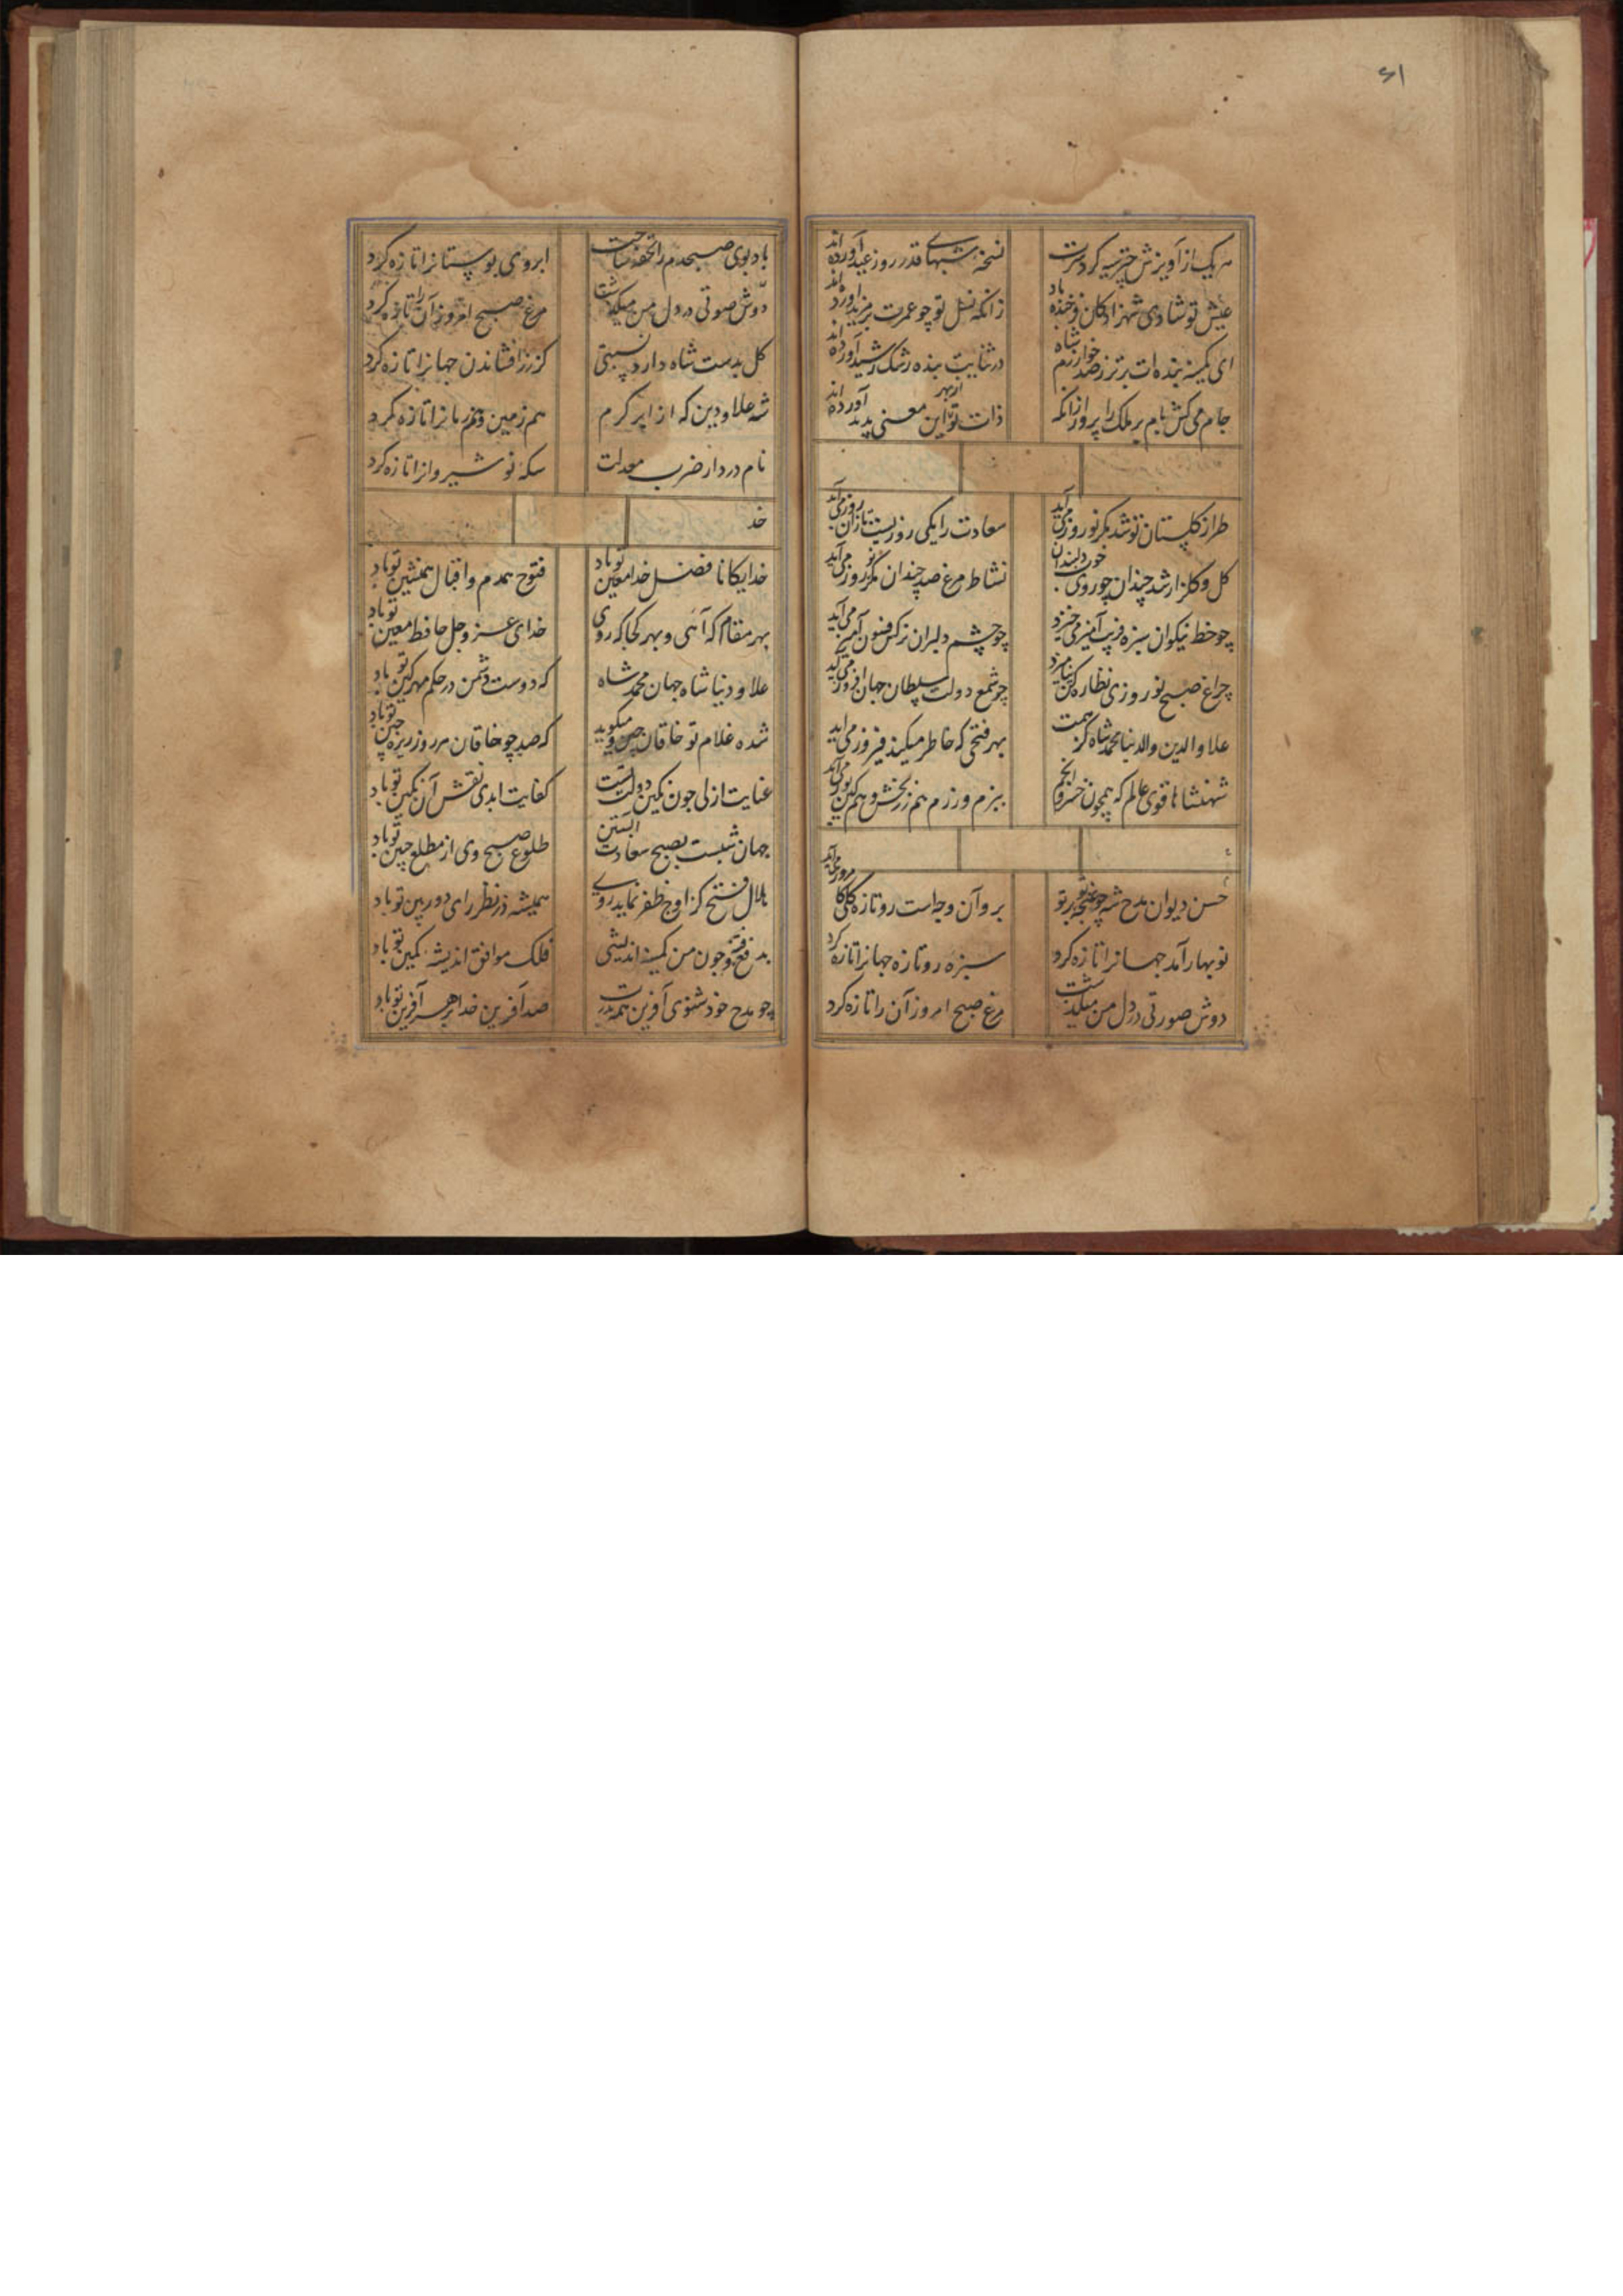 ۶۱
هریک از آویزش چتر سیه کردست
نسخه شبهای قدر روز عید آورده اند
عیش تو شادی شهزادگان فرخنده باد
زانکه نسل تو چو عمرت بر مزید آورده اند
ای کمینه بنده ات برتر ز صد خوارزم شاه
در ثنایت بنده رشک رشید آورده اند
جام می کش بام بر ملک را پرواز انکه
ذات تو از بهر این معنی پدید آورده اند
طراز گلستان نو شد مگر نوروز می آید
سعادت را یکی روزیست تازان روز می آید
گل و گلزار شد چندان چو روی خوب دلبندان
نشاط مرغ صد چندان مگر نوروز می آید
چو خط نیکوان سبزه فریب آمیز می خیزد
چو چشم دلبران نرکس فسون آمیز می آید
چراغ صبح نوروزی نظاره کن
چو شمع دولت سلطان جهان افروز می آید
علاء الدین والدنیا محمد شاه کز همت
بهر فتحی که خاطر میکند فیروز می آید
شهنشاها قوی عالم که همچون خسرو انجم
ببزم و رزم هم زر بخش و هم کین توز می آید
حسن دیوان مدح شه چو غنچه بر تو
بر و آن وجه است رو تازه گلی کا مروز می آید
نوبهار آمد جهانرا تازه کرد
سبزه رو تازه جهانرا تازه کرد
دوش صورتی در دل من میگذشت
مرغ صبح امروز آن را تازه کرد
باد بوی صبحدم را تحفه ساخت
ابروی بوستانرا تازه کرد
دوش صوتی در دل من میگذشت
مرغ صبح امروز آن را تازه کرد
گل بدست شاه دارد نسبتی
کز زر افشاندن جهانرا تازه کرد
شه علاء دین که از ابر کرم
هم زمین و هم زمانرا تازه کرد
نام در دار ضرب معدلت
سکه نوشیروانرا تازه کرد
خد
خدایکانا فضل خدا معین تو باد
فتوح همدم و اقبال همنشین تو باد
بهر مقام که آئی و بهر کجا که روی
خدای عز و جل حافظ معین تو باد
علاء دنیا شاه جهان محمد شاه
که دوست دشمن در حکم مهر کین تو باد
شده غلام تو خاقان چین و میگوید
که صد چو خاقان هر روز ریزه چین تو باد
عنایت ازلی چون نگین دولت تست
کفایت ابدی نقش آن نگین تو باد
جهان شبست بصبح سعادت ابستن
طلوع صبح وی از مطلع جبین تو باد
هلال فتح کز اوج ظفر نماید روی
همیشه در نظر رای دور بین تو باد
بدفع فتنه چون من کمینه اندیشی
فلک موافق اندیشه کمین تو باد
چو مدح خود شنوی آفرین همه
صد آفرین خدا بر سر آفرین تو باد